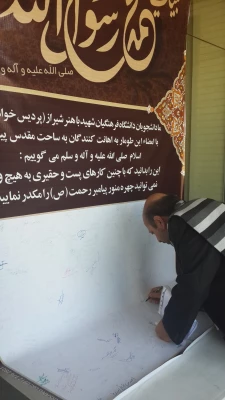 لبیک
محمد رسول الله
صلی الله علیه و آله و
ما دانشجویان دانشگاه فرهنگیان شهید باهنر شیراز (پردیس خواه
با امضاء این طومار به اهانت کنندگان به ساحت مقدس پی
اسلام صلی الله علیه و آله و سلم می گوییم :
این را بدانید که با چنین کارهای پست و حقیری به هیچ و
نمی توانید چهره منور پیامبر رحمت (ص) را مکدر نمایید